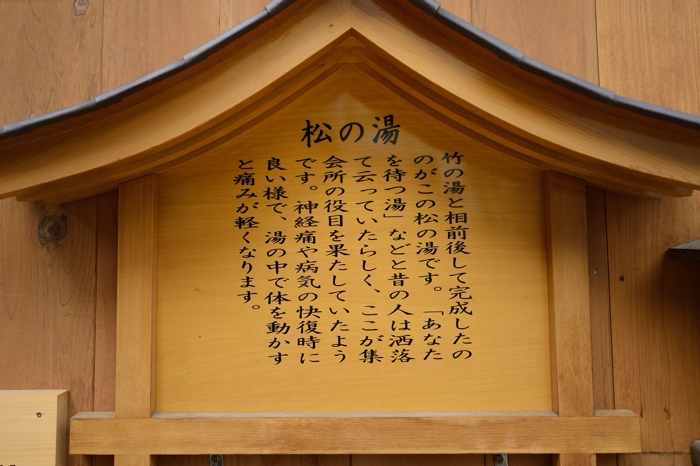 松の湯
竹の湯と相前後して完成したの
のがこの松の湯です。「あなた
を待つ湯」などと昔の人は洒落
て云っていたらしく、ここが集
会所の役目を果たしていたよう
です。神経痛や病気の快復時に
良い様で、湯の中で体を動かす
と痛みが軽くなります。